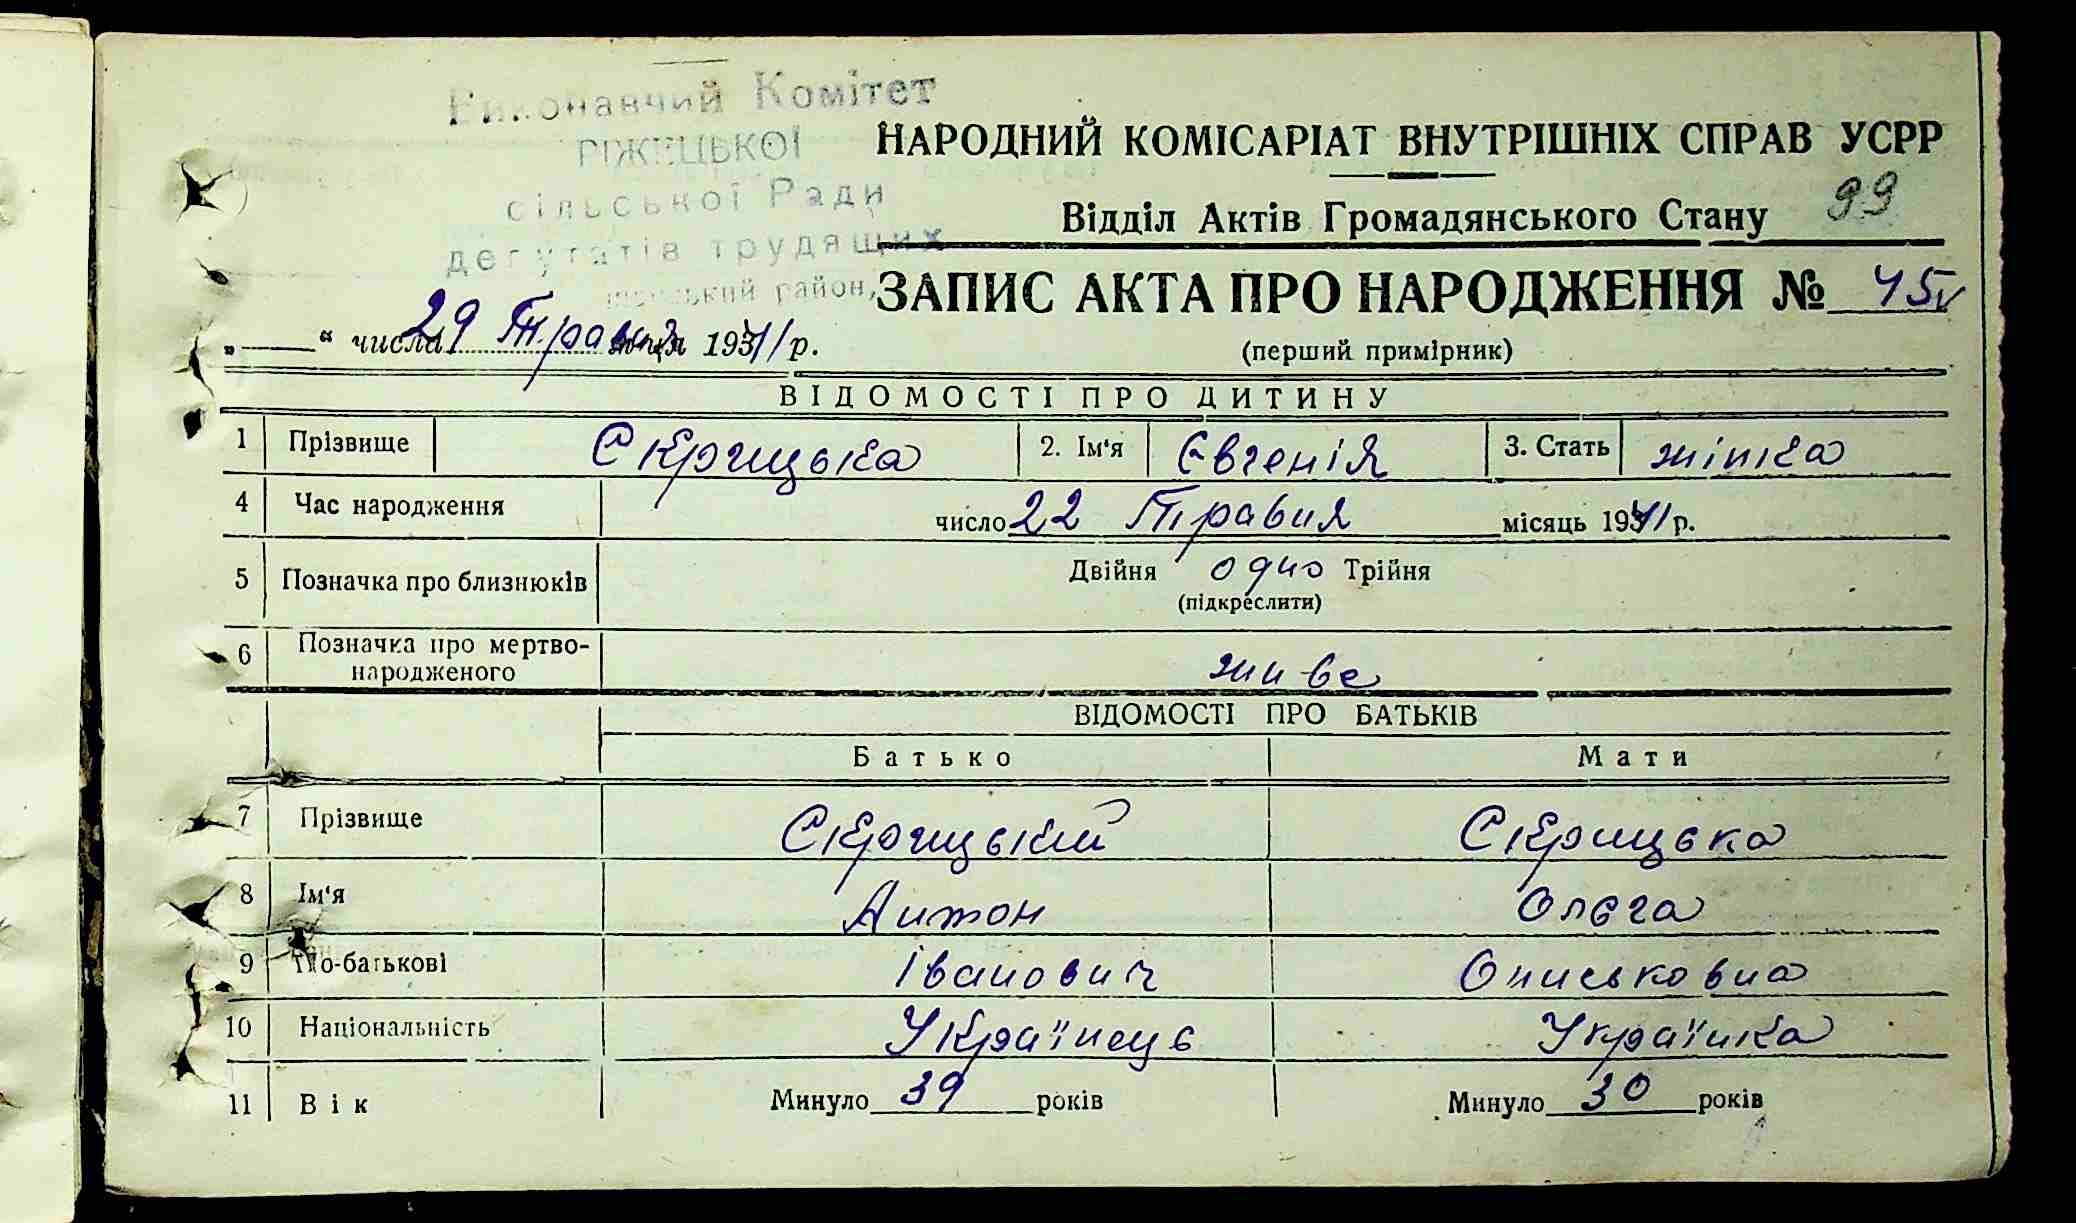 Виконавчий Комітет
РІЖЕЦЬКОЇ
сільської Ради
депутатів трудящих
район,
НАРОДНИЙ КОМІСАРІАТ ВНУТРІШНІХ СПРАВ УСРР
Відділ Актів Громадянського Стану 99
ЗАПИС АКТА ПРО НАРОДЖЕННЯ № 45
„ “ числа 29 Травня місяця 1941 р.
(перший примірник)
ВІДОМОСТІ ПРО ДИТИНУ
1 Прізвище Скрицька 2. Ім'я Євгенія 3. Стать жінка
4 Час народження число 22 Травня місяць 1941 р.
5 Позначка про близнюків Двійня одно Трійня
(підкреслити)
6 Позначка про мертво-
народженого живе
ВІДОМОСТІ ПРО БАТЬКІВ
Батько Мати
7 Прізвище Скрицький Скрицька
8 Ім'я Антон Ольга
9 По-батькові Іванович Ониськовна
10 Національність Українець Українка
11 Вік Минуло 39 років Минуло 30 років